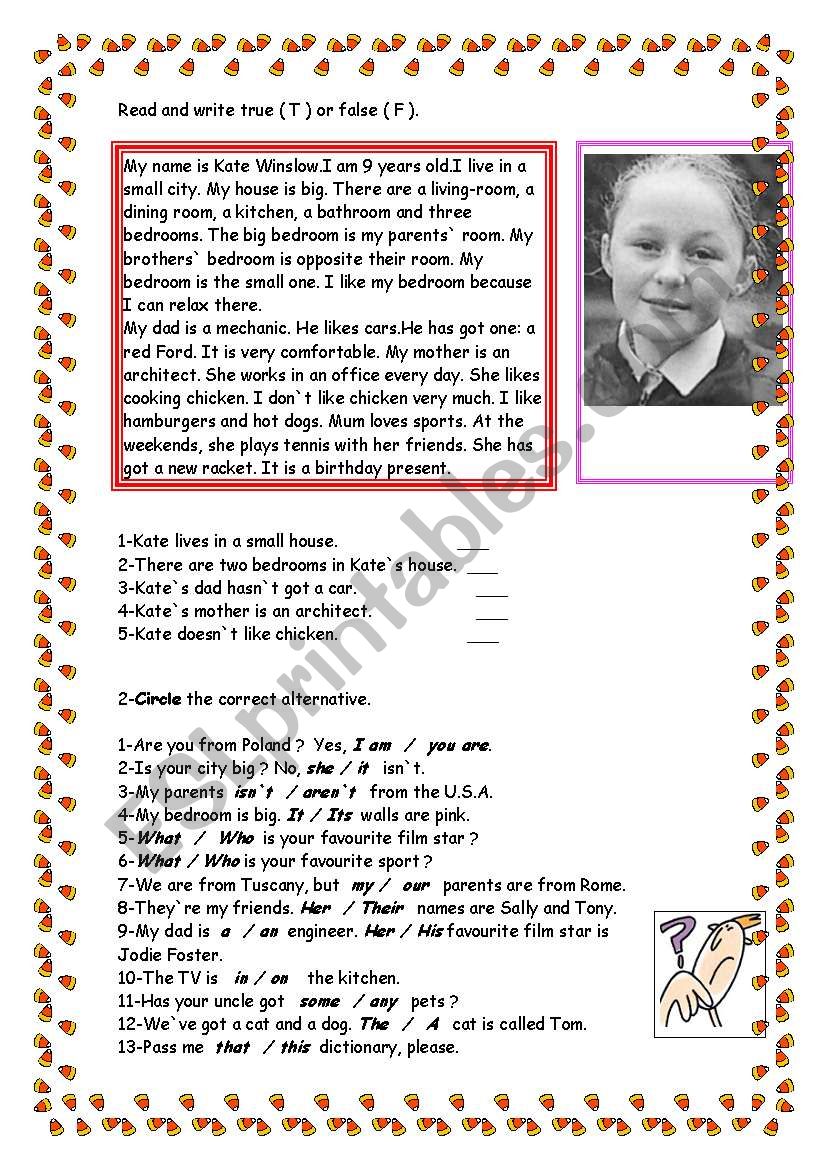 Read and write true ( T ) or false ( F ).
My name is Kate Winslow.I am 9 years old.I live in a
small city. My house is big. There are a living-room, a
dining room, a kitchen, a bathroom and three
bedrooms. The big bedroom is my parents` room. My
brothers` bedroom is opposite their room. My
bedroom is the small one. I like my bedroom because
I can relax there.
My dad is a mechanic. He likes cars.He has got one: a
red Ford. It is very comfortable. My mother is an
architect. She works in an office every day. She likes
cooking chicken. I don`t like chicken very much. I like
hamburgers and hot dogs. Mum loves sports. At the
weekends, she plays tennis with her friends. She has
got a new racket. It is a birthday present.
1-Kate lives in a small house. ___
2-There are two bedrooms in Kate`s house. ___
3-Kate`s dad hasn`t got a car. ___
4-Kate`s mother is an architect. ___
5-Kate doesn`t like chicken. ___
2-Circle the correct alternative.
1-Are you from Poland ? Yes, I am / you are.
2-Is your city big ? No, she / it isn`t.
3-My parents isn`t / aren`t from the U.S.A.
4-My bedroom is big. It / Its walls are pink.
5-What / Who is your favourite film star ?
6-What / Who is your favourite sport ?
7-We are from Tuscany, but my / our parents are from Rome.
8-They`re my friends. Her / Their names are Sally and Tony.
9-My dad is a / an engineer. Her / His favourite film star is
Jodie Foster.
10-The TV is in / on the kitchen.
11-Has your uncle got some / any pets ?
12-We`ve got a cat and a dog. The / A cat is called Tom.
13-Pass me that / this dictionary, please.
?
ESLprintables.com